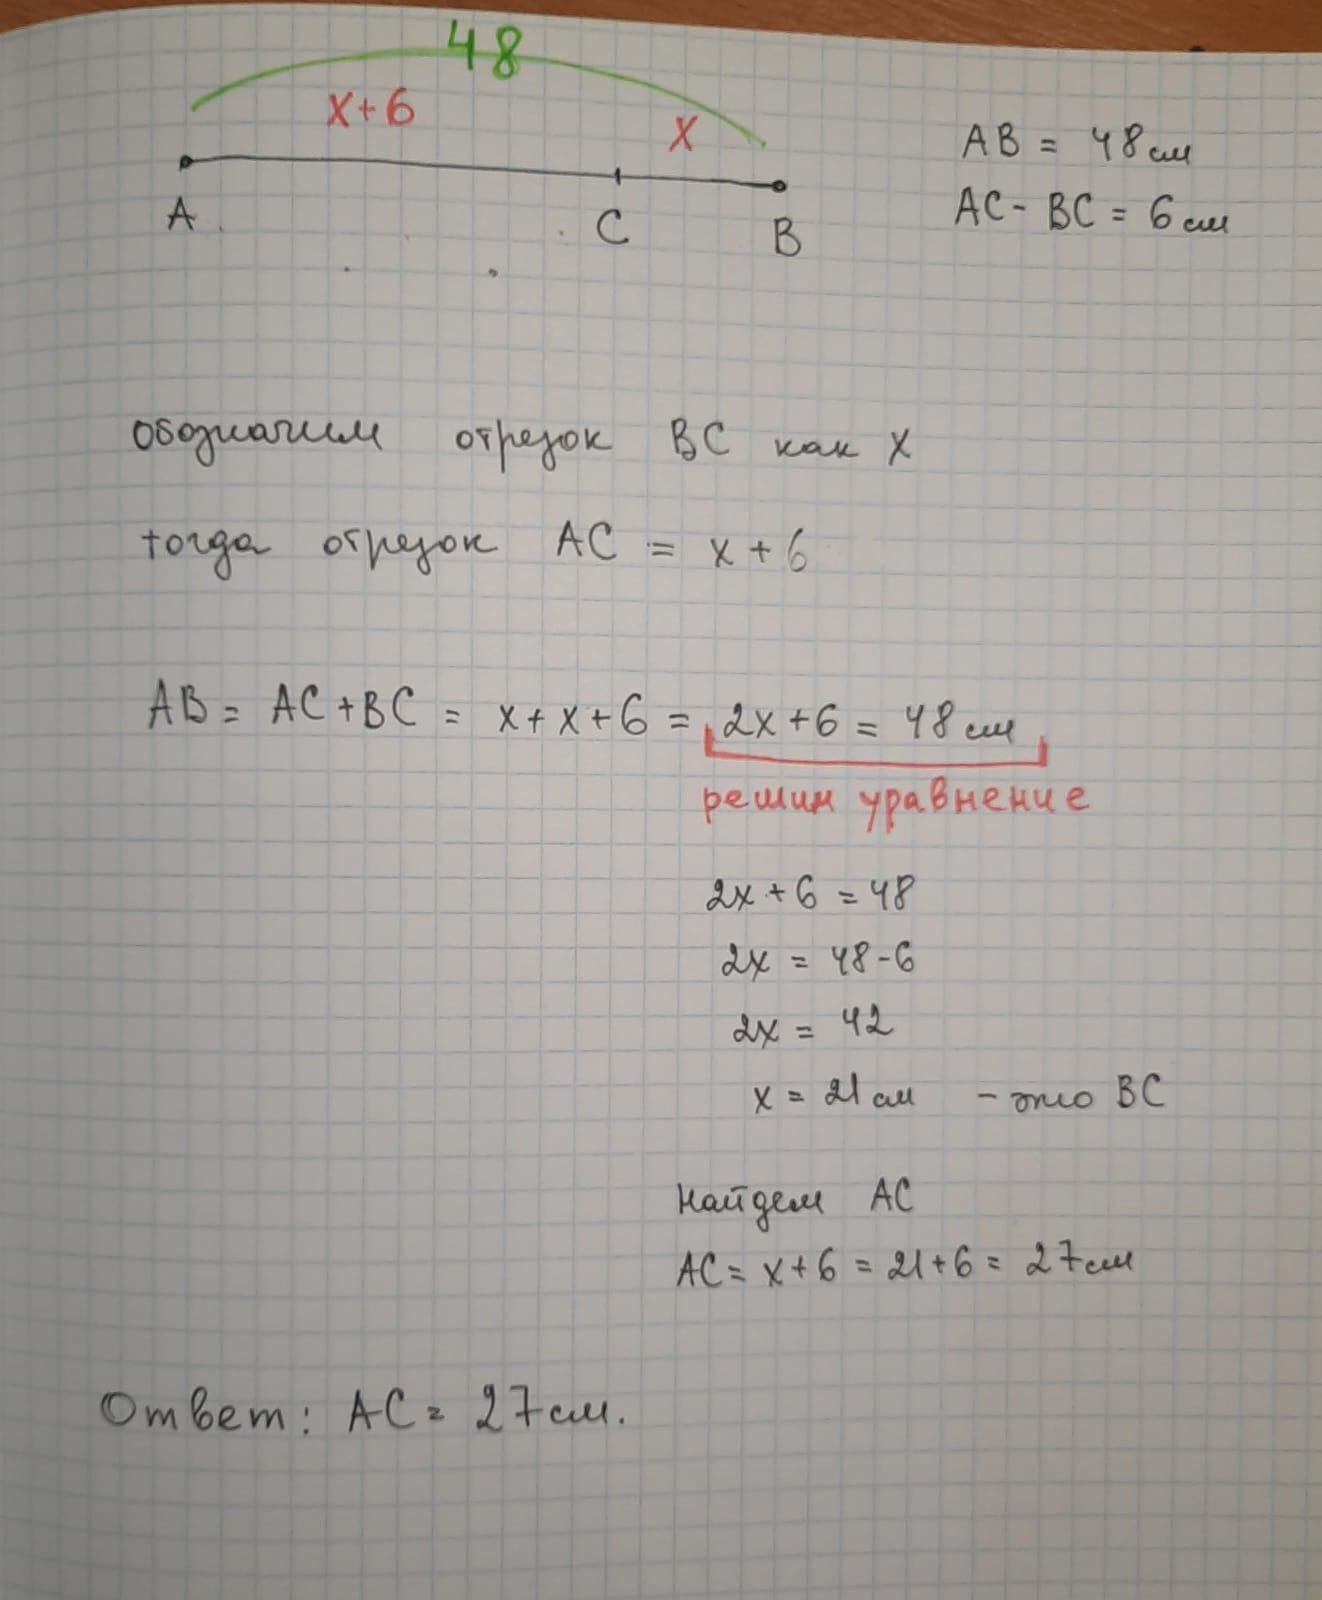 48
x+6
x
A
C
B
AB = 48см
AC - BC = 6см
обозначим отрезок BC как x
тогда отрезок AC = x + 6
AB = AC+BC = x+x+6 = 2x+6 = 48см
решим уравнение
2x + 6 = 48
2x = 48-6
2x = 42
x = 21см - это BC
Найдем AC
AC = x+6 = 21+6 = 27см
Ответ: AC = 27см.